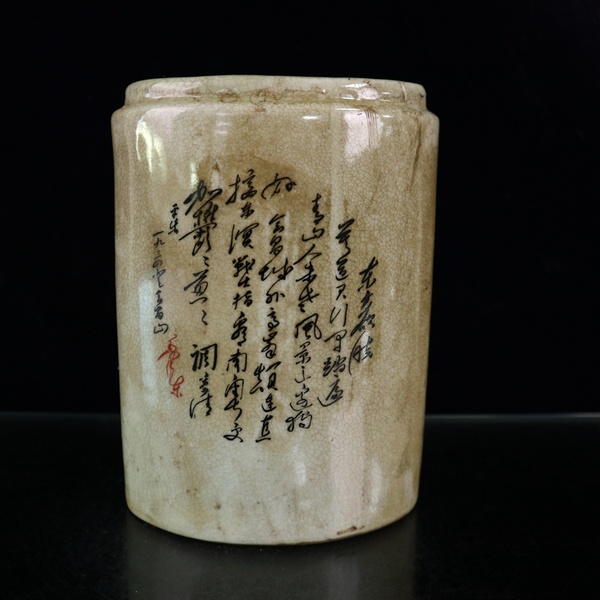 东方欲晓
莫道君行早踏遍
青山人未老风景这边独
好 会昌城外高峰颠连直
接东溟战士指看南粤更
加鬱々葱々 调寄清
平乐
一九三四 会昌山
毛泽东